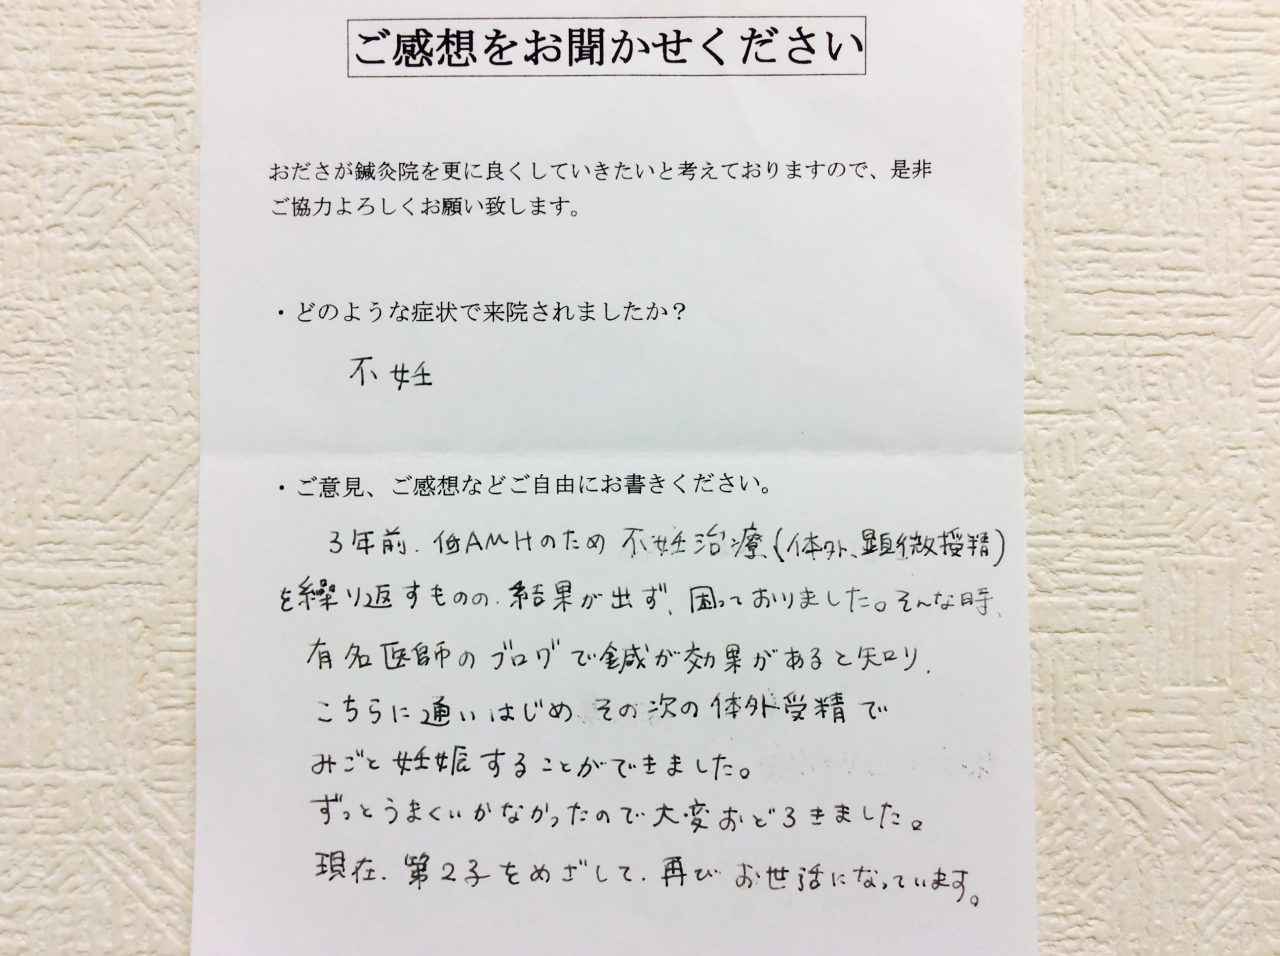 ご感想をお聞かせください
おださが鍼灸院を更に良くしていきたいと考えておりますので、是非
ご協力よろしくお願い致します。
・どのような症状で来院されましたか？
不妊
・ご意見、ご感想などご自由にお書きください。
3年前、低AMHのため不妊治療、(体外、顕微授精)
を繰り返すものの、結果が出ず、困っておりました。そんな時、
有名医師のブログで鍼が効果があると知り、
こちらに通いはじめ、その次の体外受精で
みごと妊娠することができました。
ずっとうまくいかなかったので大変おどろきました。
現在、第2子をめざして、再びお世話になっています。